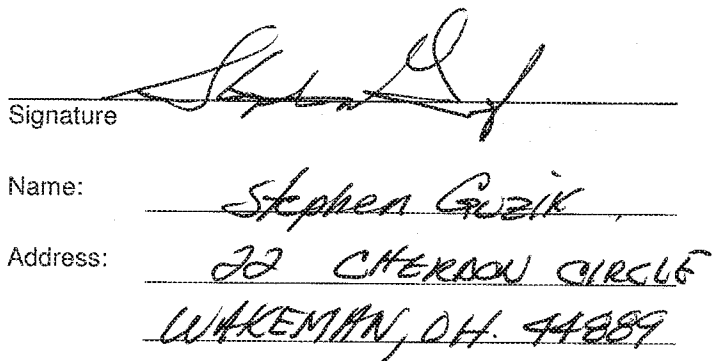 Stephen Guzik
Signature
Name: Stephen Guzik
Address: 22 CHERDON CIRCLE
WAKEMAN, OH. 44889